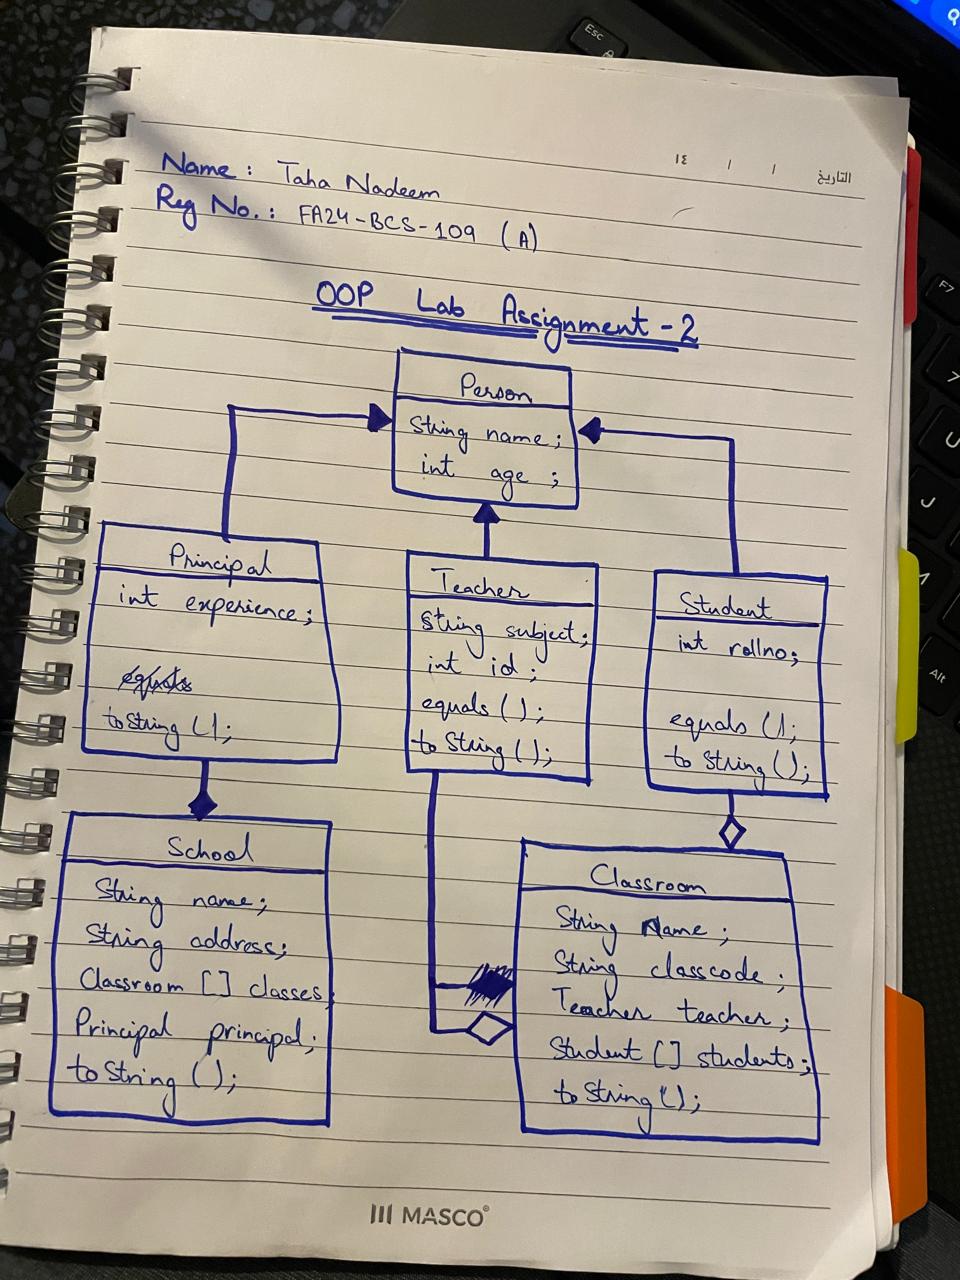 Esc
١٤ / / التاريخ
Name: Taha Nadeem
Reg No.: FA24-BCS-109 (A)
F7
OOP Lab Assignment-2
Person
String name;
int age;
Principal
int experience;
equals
toString();
Teacher
String subject;
int id;
equals();
toString();
Student
int rollno;
equals();
toString();
U
J
Alt
School
String name;
String address;
Classroom [] classes;
Principal principal;
toString();
Classroom
String Name;
String classcode;
Teacher teacher;
Student [] students;
toString();
MASCO®